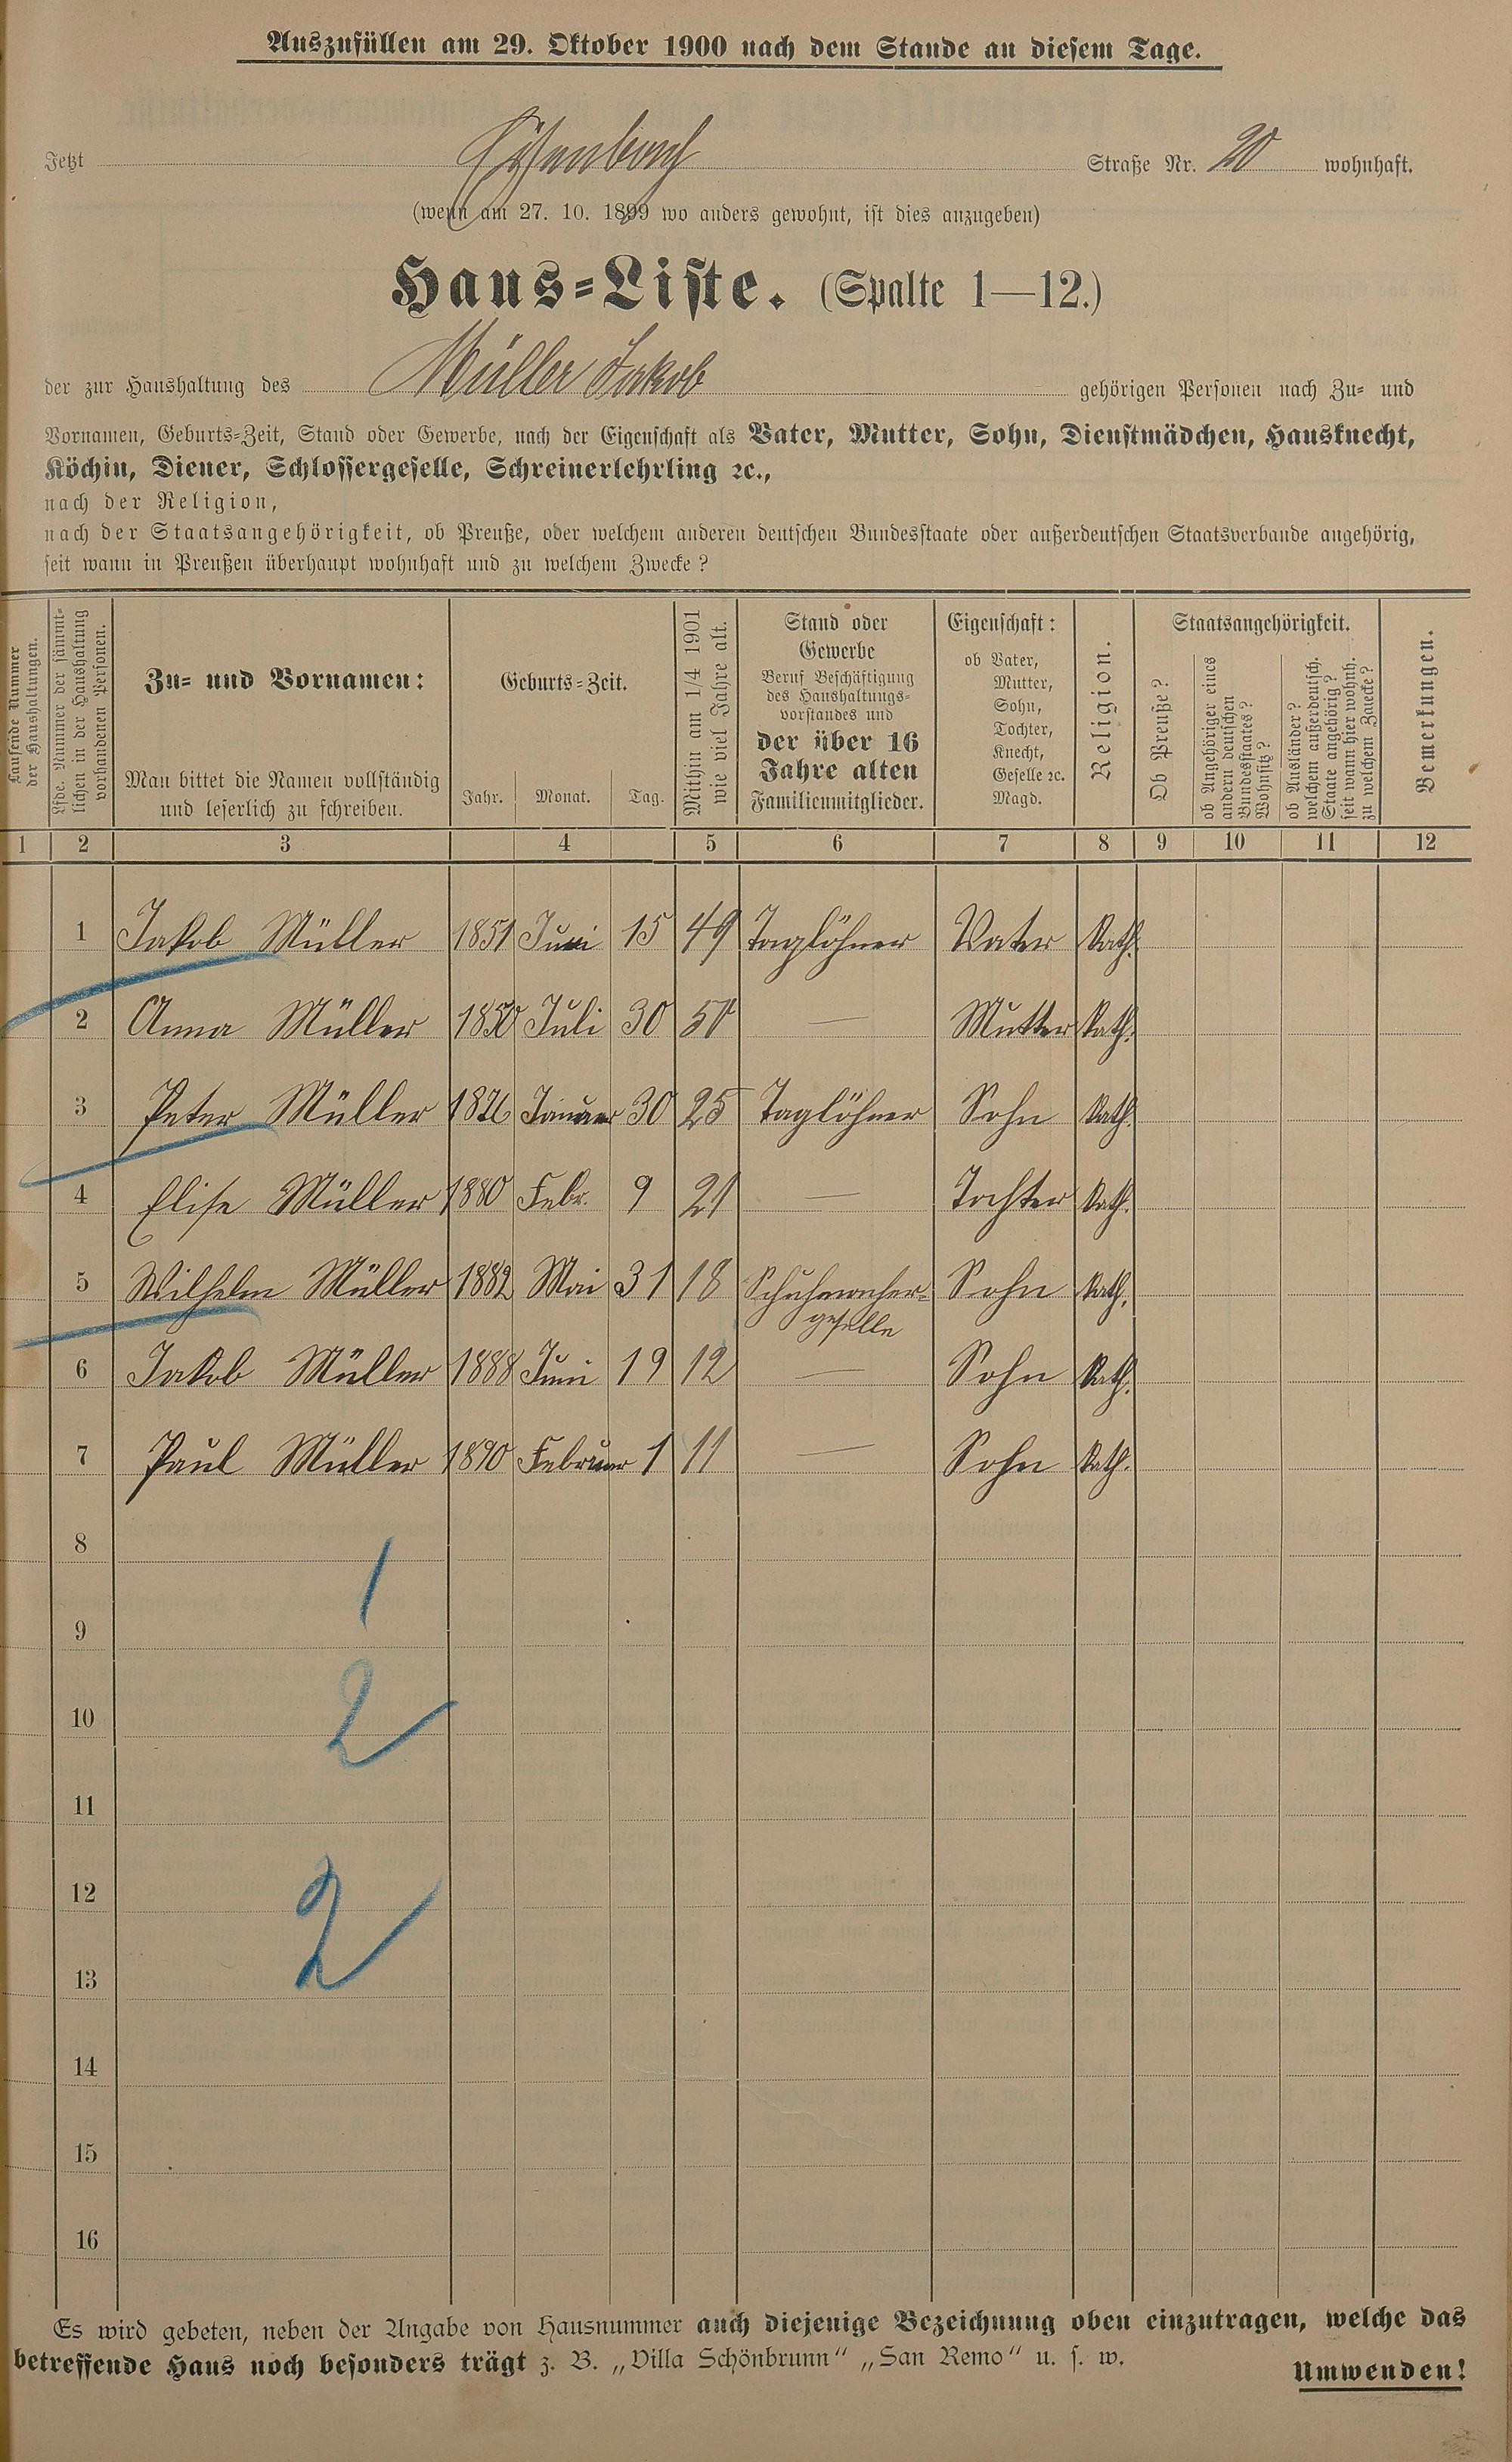 Auszufüllen am 29. Oktober 1900 nach dem Stande an diesem Tage.
Jetzt Eschenbach Straße Nr. 20 wohnhaft.
(wenn am 27. 10. 1899 wo anders gewohnt, ist dies anzugeben)
Haus=Liste. (Spalte 1—12.)
der zur Haushaltung des Müller Jakob gehörigen Personen nach Zu= und
Vornamen, Geburts=Zeit, Stand oder Gewerbe, nach der Eigenschaft als Vater, Mutter, Sohn, Dienstmädchen, Hausknecht,
Köchin, Diener, Schlossergeselle, Schreinerlehrling ꝛc.,
nach der Religion,
nach der Staatsangehörigkeit, ob Preuße, oder welchem anderen deutschen Bundesstaate oder außerdeutschen Staatsverbande angehörig,
seit wann in Preußen überhaupt wohnhaft und zu welchem Zwecke?
Laufende Nummer
der Haushaltungen.
Lfde. Nummer der sämmt=
lichen in der Haushaltung
vorhandenen Personen.
Zu= und Vornamen:
Man bittet die Namen vollständig
und leserlich zu schreiben.
Geburts=Zeit.
Jahr. Monat. Tag.
Mithin am 1/4 1901
wie viel Jahre alt.
Stand oder
Gewerbe
Beruf Beschäftigung
des Haushaltungs=
vorstandes und
der über 16
Jahre alten
Familienmitglieder.
Eigenschaft:
ob Vater,
Mutter,
Sohn,
Tochter,
Knecht,
Geselle ꝛc.
Magd.
Religion.
Staatsangehörigkeit.
Ob Preuße?
ob Angehöriger eines
andern deutschen
Bundesstaates?
Wohnsitz?
ob Ausländer?
welchem außerdeutsch.
Staate angehörig?
seit wann hier wohnh.
zu welchem Zwecke?
Bemerkungen.
1 2 3 4 5 6 7 8 9 10 11 12
1 Jakob Müller 1851 Juni 15 49 Taglöhner Vater Kath.
2 Anna Müller 1850 Juli 30 50 — Mutter Kath.
3 Peter Müller 1876 Januar 30 25 Taglöhner Sohn Kath.
4 Elise Müller 1880 Febr. 9 21 — Tochter Kath.
5 Wilhelm Müller 1882 Mai 31 18 Schuhmacher=
geselle Sohn Kath.
6 Jakob Müller 1888 Juni 19 12 — Sohn Kath.
7 Paul Müller 1890 Februar 1 11 — Sohn Kath.
8
1
9
10
2
11
12
2
13
14
15
16
Es wird gebeten, neben der Angabe von Hausnummer auch diejenige Bezeichnung oben einzutragen, welche das
betreffende Haus noch besonders trägt z. B. „Villa Schönbrunn“ „San Remo“ u. s. w.
Umwenden!